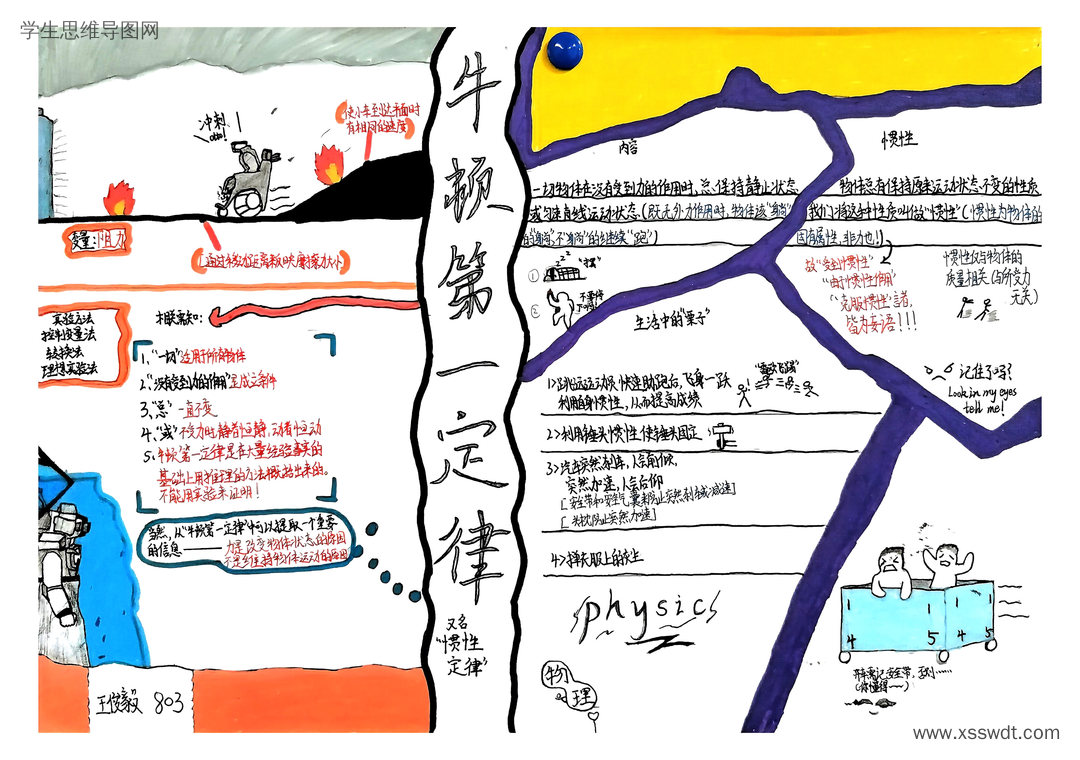 学生思维导图网
牛顿第一定律
又名
“惯性
定律”
冲刺!
使小车到达平面时
有相同的速度
变量:阻力
通过移动距离反映摩擦力大小
实验方法
控制变量法
转换法
理想实验法
相关需知:
1、“一切”适用于所有物体
2、“没有受到力的作用”是成立条件
3、“总”一直不变
4、“或”不受力时静者恒静,动者恒动
5、牛顿第一定律是在大量经验事实的
基础上用推理的方法概括出来的。
不能用实验来证明!
当然,从“牛顿第一定律”中可以提取一个重要
的信息——力是改变物体状态的原因
不是维持物体运动的原因
王俊毅 803
内容
一切物体在没有受到力的作用时,总保持静止状态
或匀速直线运动状态(既无外力作用时,物体该“躺”
的“躺”,不“躺”的继续“跑”)
①
②
惯性
物体总有保持原来运动状态不变的性质
我们将这种性质叫做“惯性”(惯性为物体的
固有属性,非力也!)
故“受到惯性”
“由于惯性作用”
“克服惯性”言者,
皆为妄语!!!
惯性仅与物体的
质量相关(与所受力
无关)
记住了吗?
Look in my eyes
tell me!
生活中的“栗子”
1>跳远运动员快速助跑后,飞身一跃
利用自身惯性,从而提高成绩
2>利用锤头惯性使锤头固定
3>汽车突然刹车,人会前倾,
突然加速,人会后仰
[安全带和安全气囊来防止突然刹车或减速]
[头枕防止突然加速]
4>掸去衣服上的灰尘
physics
物理
4 5 4 5
开车要记安全带,否则……
(你懂得~)
www.xsswdt.com